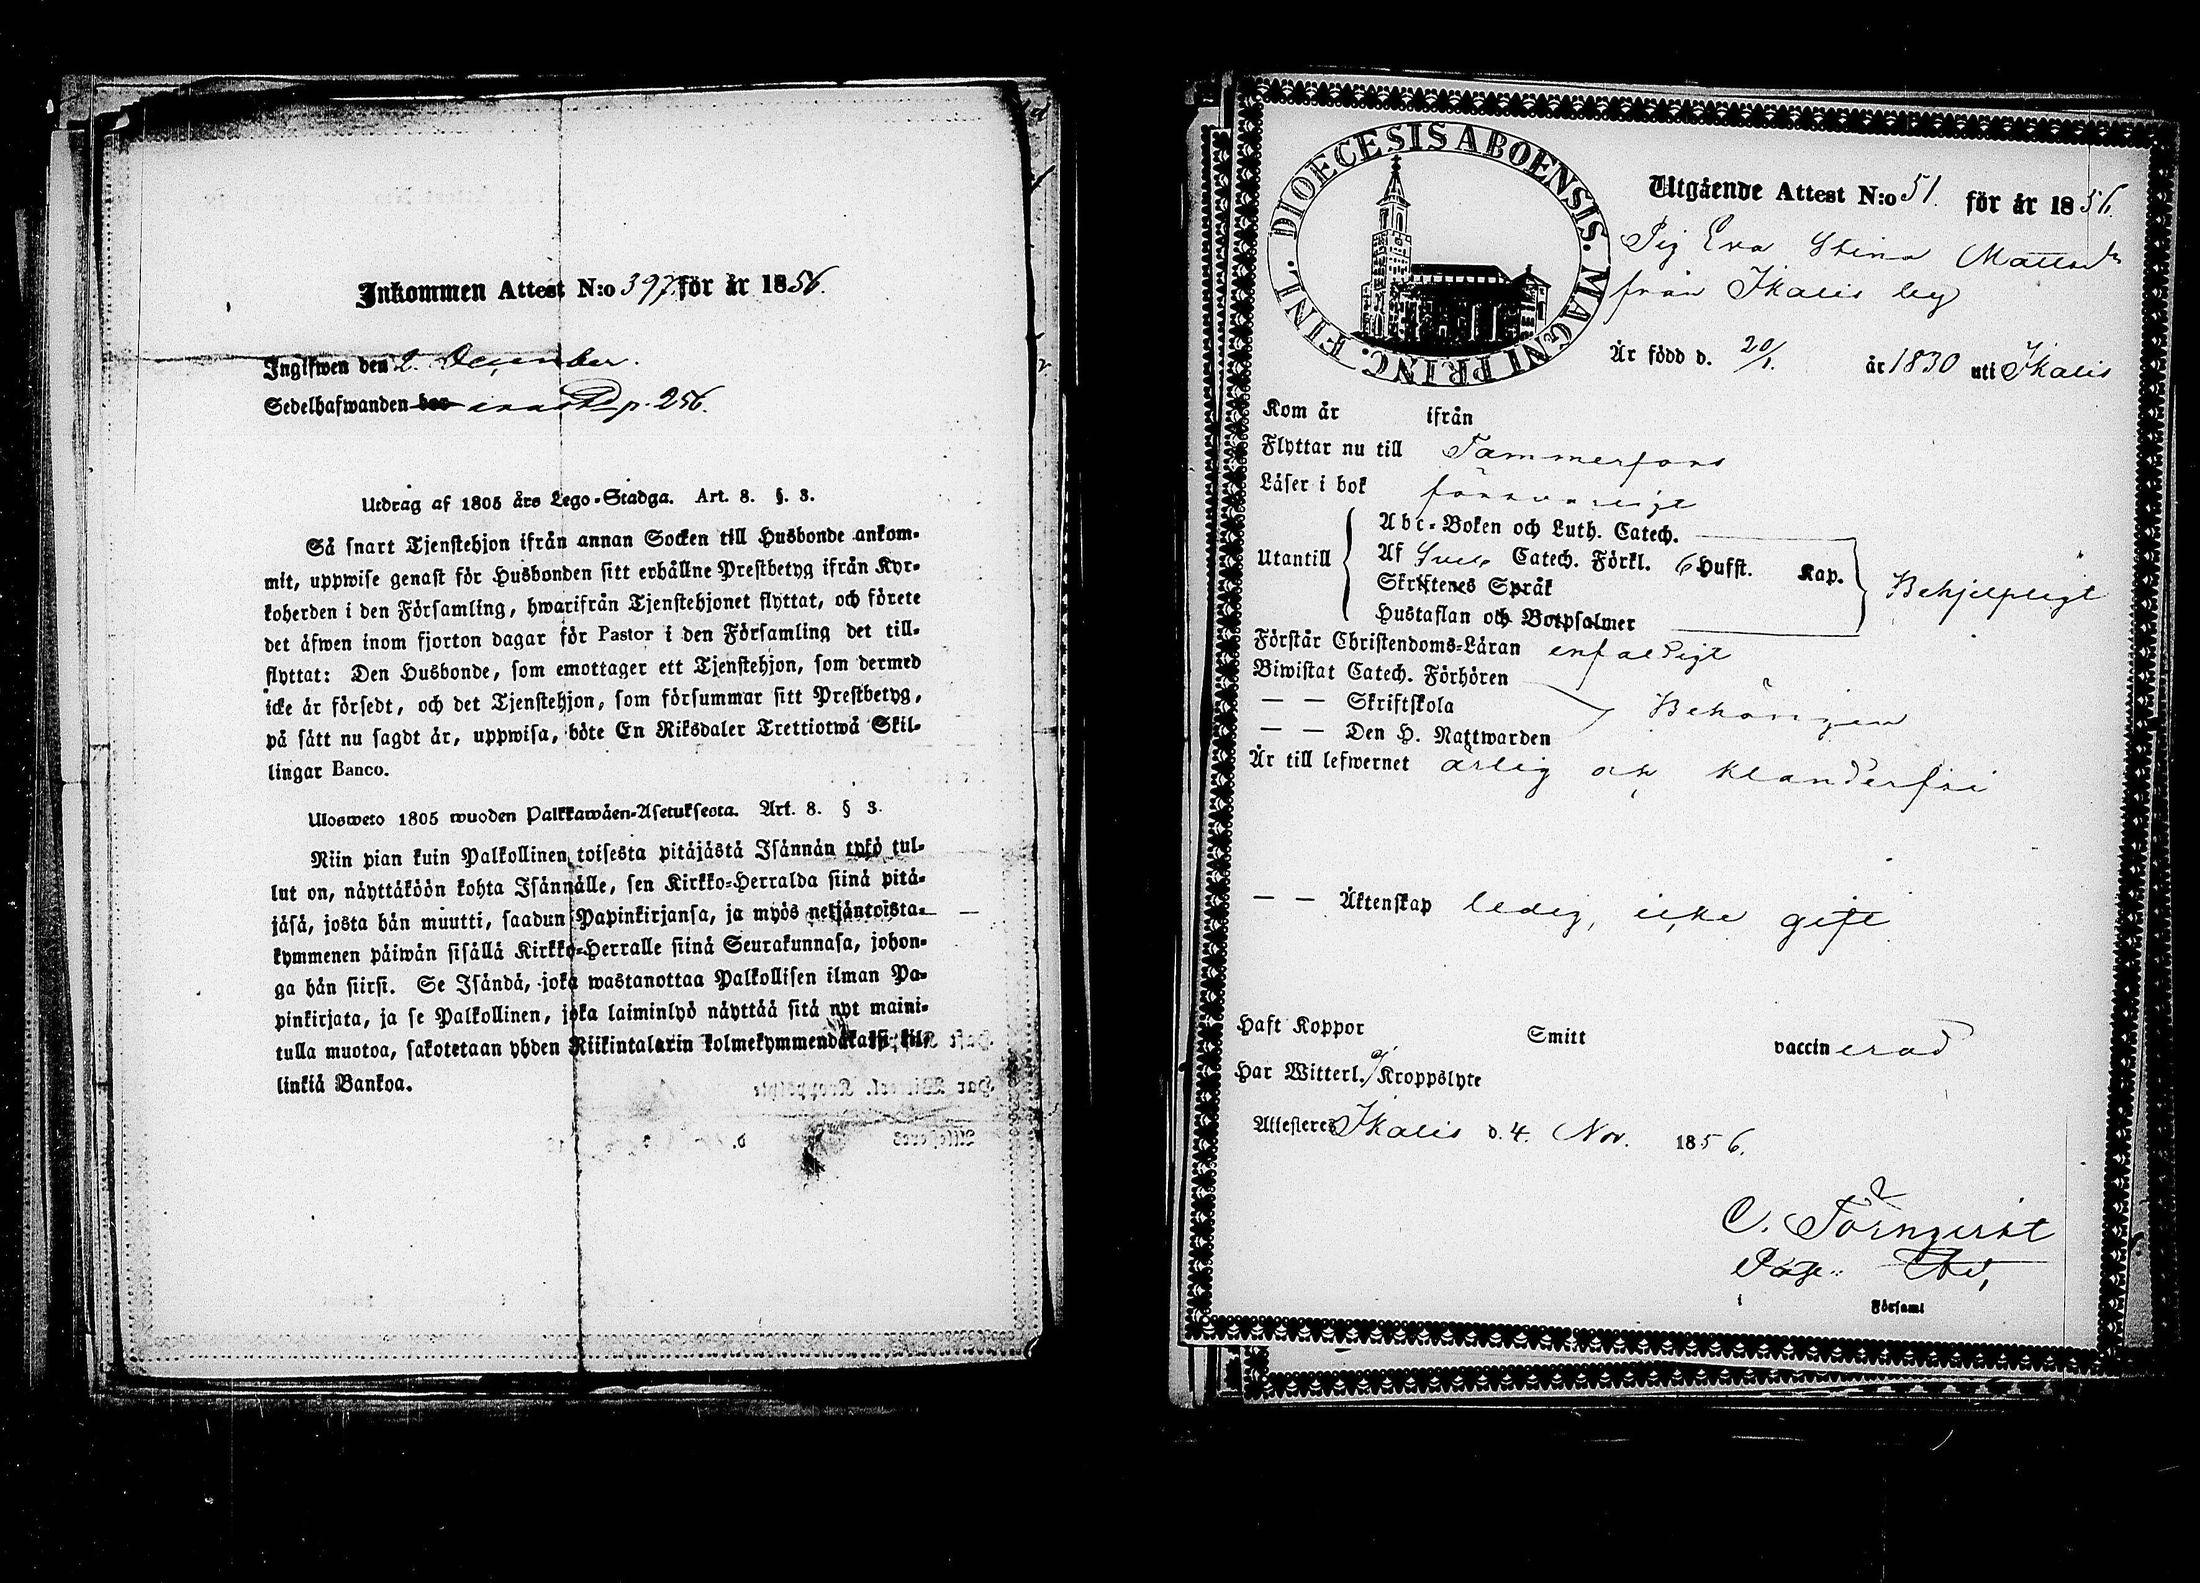 Inkommen Attest N:o 397 för år 1856.
Ingifwen den 2. December.
Sedelhafwanden p. 256.
Utdrag af 1805 års Lego-Stadga. Art. 8. §. 3.
Så snart Tjenstehjon ifrån annan Socken till Husbonde ankom-
mit, uppwise genast för Husbonden sitt erhållne Prestbetyg ifrån Kyr-
koherden i den Församling, hwarifrån Tjenstehjonet flyttat, och förete
det äfwen inom fjorton dagar för Pastor i den Församling det till-
flyttat: Den Husbonde, som emottager ett Tjenstehjon, som dermed
icke är försedt, och det Tjenstehjon, som försummar sitt Prestbetyg,
på sätt nu sagdt är, uppwisa, böte En Riksdaler Trettiotwå Skil-
lingar Banco.
Ulosweto 1805 wuoden Palkkawäen-Asetuksesta. Art. 8. § 3.
Niin pian kuin Palkollinen toisesta pitäjästä Isännän tykö tul-
lut on, näyttäköön kohta Isännälle, sen Kirkko-Herralda siinä pitä-
jäsä, josta hän muutti, saadun Papinkirjansa, ja myös neljäntoista-
kymmenen päiwän sisällä Kirkko-Herralle siinä Seurakunnasa, johon-
ga hän siirsi. Se Isändä, joka wastanottaa Palkollisen ilman Pa-
pinkirjata, ja se Palkollinen, joka laiminlyö näyttää sitä nyt maini-
tulla muotoa, sakotetaan yhden Riikintalarin kolmekymmendäkaksi kil-
linkiä Bankoa.
DIOECESIS ABOENSIS. MAGNI PRINC. FINL.
Utgående Attest N:o 51. för år 1856.
Pig Eva Stina Mattsdr
från Ikalis by
Är född d. 20/1. år 1830 uti Ikalis
Kom år ifrån
Flyttar nu till Tammerfors
Läser i bok försvarligt
Abc-Boken och Luth. Catech.
Utantill Af Sveb. Catech. Förkl. 6 Hufst. Kap. Behjelpligt
Skriftenes Språk
Hustaflan och Botpsalmer
Förstår Christendoms-Läran enfaldigt
Biwistat Catech. Förhören
— — Skriftskola Behörigen
— — Den H. Nattwarden
Är till lefwernet ärlig och klanderfri
— — Äktenskap ledig, icke gift
Haft Koppor Smitt vaccinerad
Har Witterl. ej Kroppslyte
Attesteres Ikalis d. 4. Nov. 1856.
C. Törnqvist
Församl